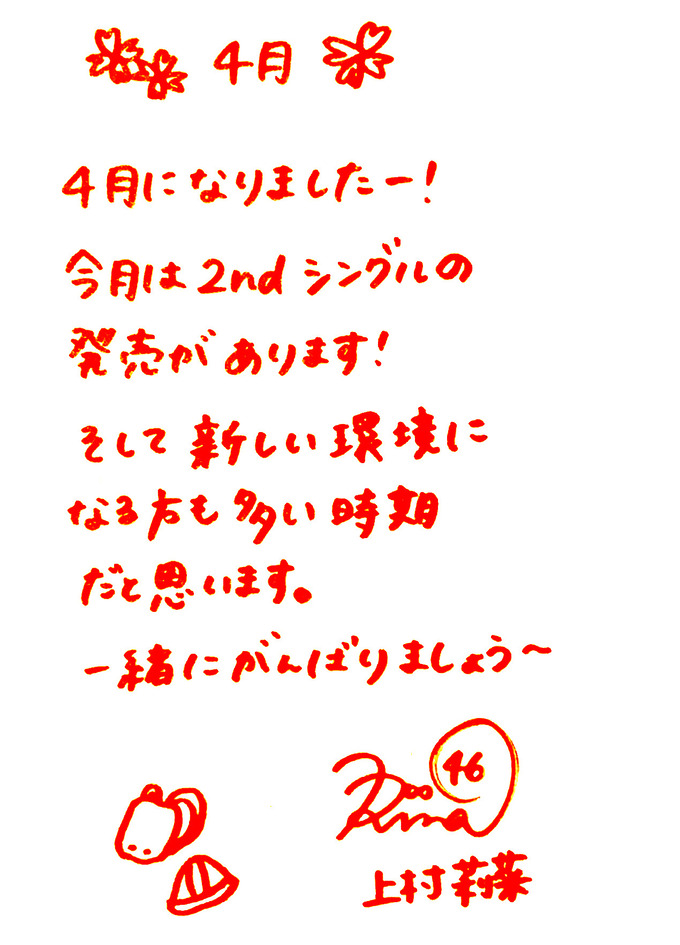 4月
4月になりましたー!
今月は2ndシングルの
発売があります!
そして新しい環境に
なる方も多い時期
だと思います。
一緒にがんばりましょう〜
46
Rina
上村莉菜